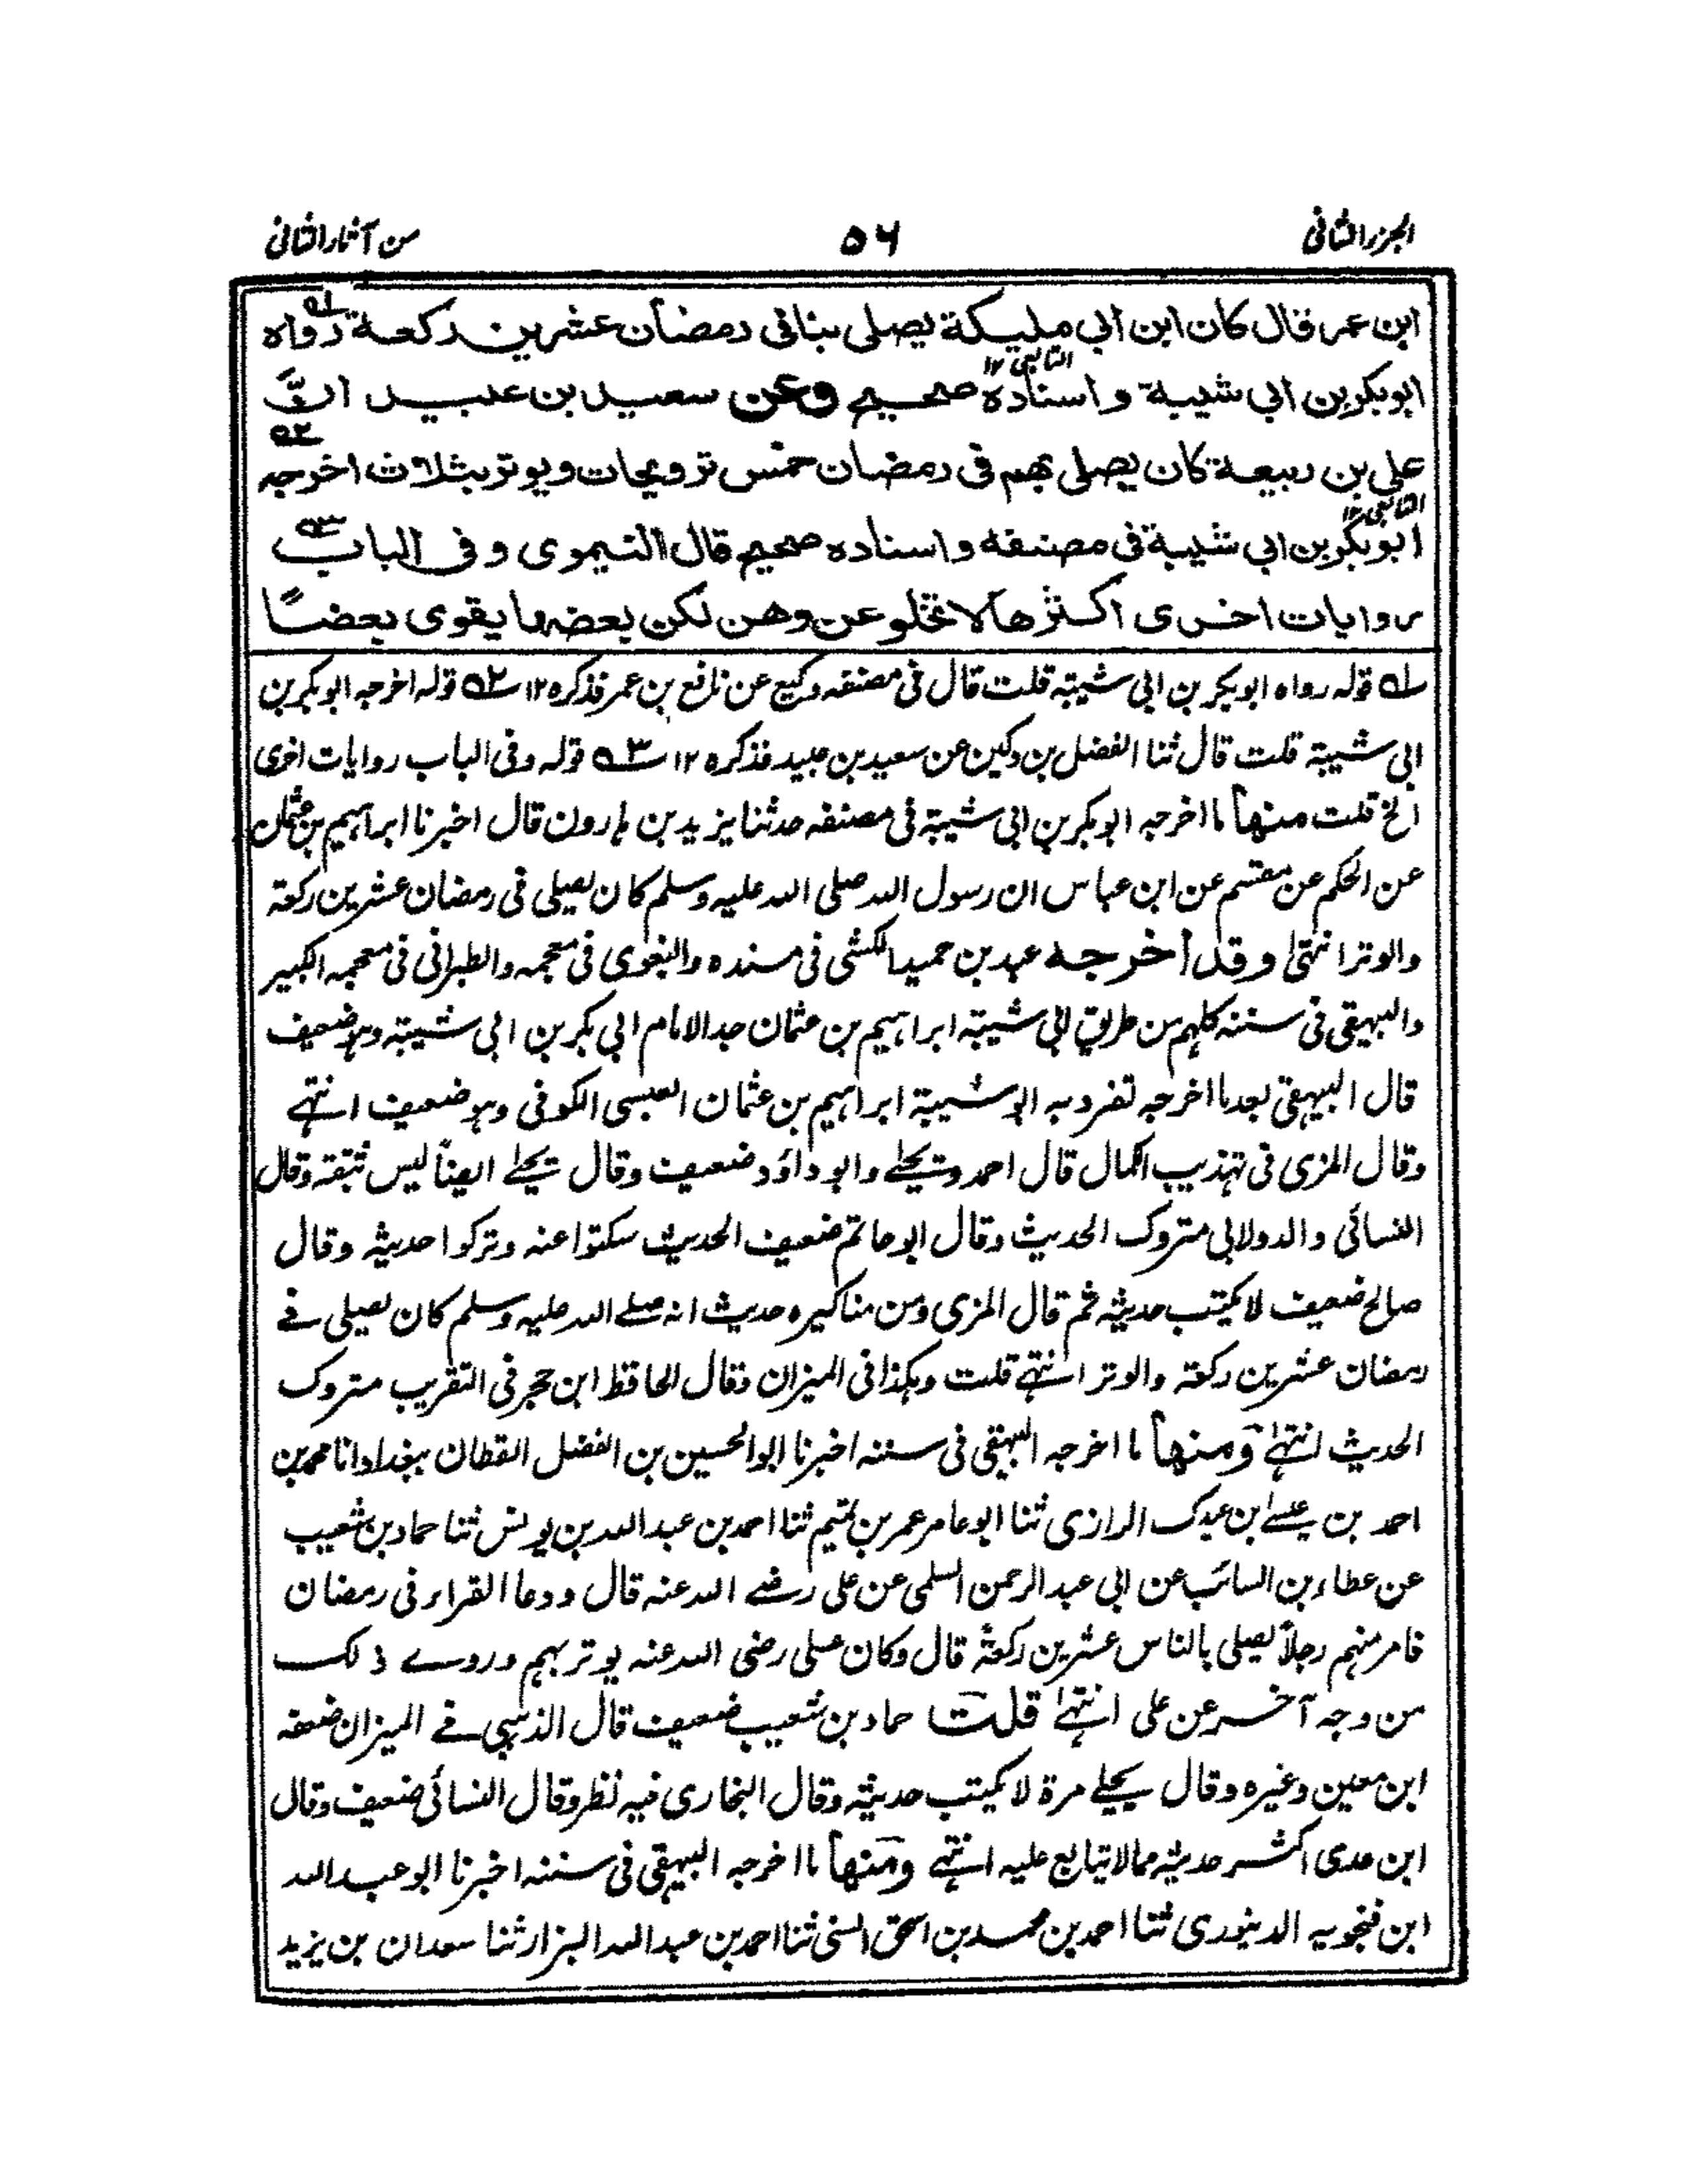 الجزء الثانی ۵۶ من آثار الثانی
ابن عمر قال کان ابن ابی ملیکة یصلی بنا فی رمضان عشرین رکعة رواه
ابو بکر بن ابی شیبة و اسناده صحیح وعن سعید بن عبید ان
علی بن ربیعة کان یصلی بهم فی رمضان خمس ترویحات ویوتر بثلاث اخرجه
ابو بکر بن ابی شیبة فی مصنفه و اسناده صحیح قال النیموی و فی الباب
روایات اخری اکثرها لا تخلو عن وهن لکن بعضها یقوی بعضا
۱؎ قوله رواه ابو بکر بن ابی شیبة قلت قال فی مصنفه وکیع عن نافع بن عمر فذکره ۱۲ ۲؎ قوله اخرجه ابو بکر بن
ابی شیبة قلت قال ثنا الفضل بن دکین عن سعید بن عبید فذکره ۱۲ ۳؎ قوله وفی الباب روایات اخری
الخ قلت منها ما اخرجه ابو بکر بن ابی شیبة فی مصنفه حدثنا یزید بن هارون قال اخبرنا ابراهیم بن عثمان
عن الحکم عن مقسم عن ابن عباس ان رسول الله صلی الله علیه وسلم کان یصلی فی رمضان عشرین رکعة
والوتر انتهی وقد اخرجه عبد بن حمید الکشی فی مسنده والبغوی فی معجمه والطبرانی فی معجمه الکبیر
والبیهقی فی سننه کلهم من طریق ابی شیبة ابراهیم بن عثمان جد الامام ابی بکر بن ابی شیبة وهو ضعیف
قال البیهقی بعد ما اخرجه تفرد به ابو شیبة ابراهیم بن عثمان العبسی الکوفی وهو ضعیف انتهے
وقال المزی فی تهذیب الکمال قال احمد و یحیٰے وابو داؤد ضعیف وقال یحیٰے ایضاً لیس بثقة وقال
النسائی والدولابی متروک الحدیث وقال ابو حاتم ضعیف الحدیث سکتوا عنه وترکوا حدیثه وقال
صالح ضعیف لا یکتب حدیثه ثم قال المزی ومن مناکیره حدیث انه صلے الله علیه وسلم کان یصلی فے
رمضان عشرین رکعة والوتر انتهے قلت وهکذا فی المیزان وقال الحافظ ابن حجر فی التقریب متروک
الحدیث انتهیٰ ومنها ما اخرجه البیهقی فی سننه اخبرنا ابو الحسین بن الفضل القطان ببغداد انا محمد بن
احمد بن عیسےٰ بن عبدک الرازی ثنا ابو عامر عمر بن تمیم ثنا احمد بن عبد الله بن یونس ثنا حماد بن شعیب
عن عطاء بن السائب عن ابی عبد الرحمن السلمی عن علی رضے الله عنه قال ودعا القراء فی رمضان
فامر منهم رجلاً یصلی بالناس عشرین رکعة قال وکان علی رضی الله عنه یوتر بهم وروے ذلک
من وجه آخر عن علی انتهےٰ قلت حماد بن شعیب ضعیف قال الذهبی فے المیزان ضعفه
ابن معین وغیره وقال یحیٰے مرة لا یکتب حدیثه وقال البخاری فیه نظر وقال النسائی ضعیف وقال
ابن عدی اکثر حدیثه مما لا یتابع علیه انتهے ومنها ما اخرجه البیهقی فی سننه اخبرنا ابو عبد الله
ابن فنجویه الدینوری ثنا احمد بن محمد بن اسحق السنی ثنا احمد بن عبد الله البزار ثنا سعدان بن یزید